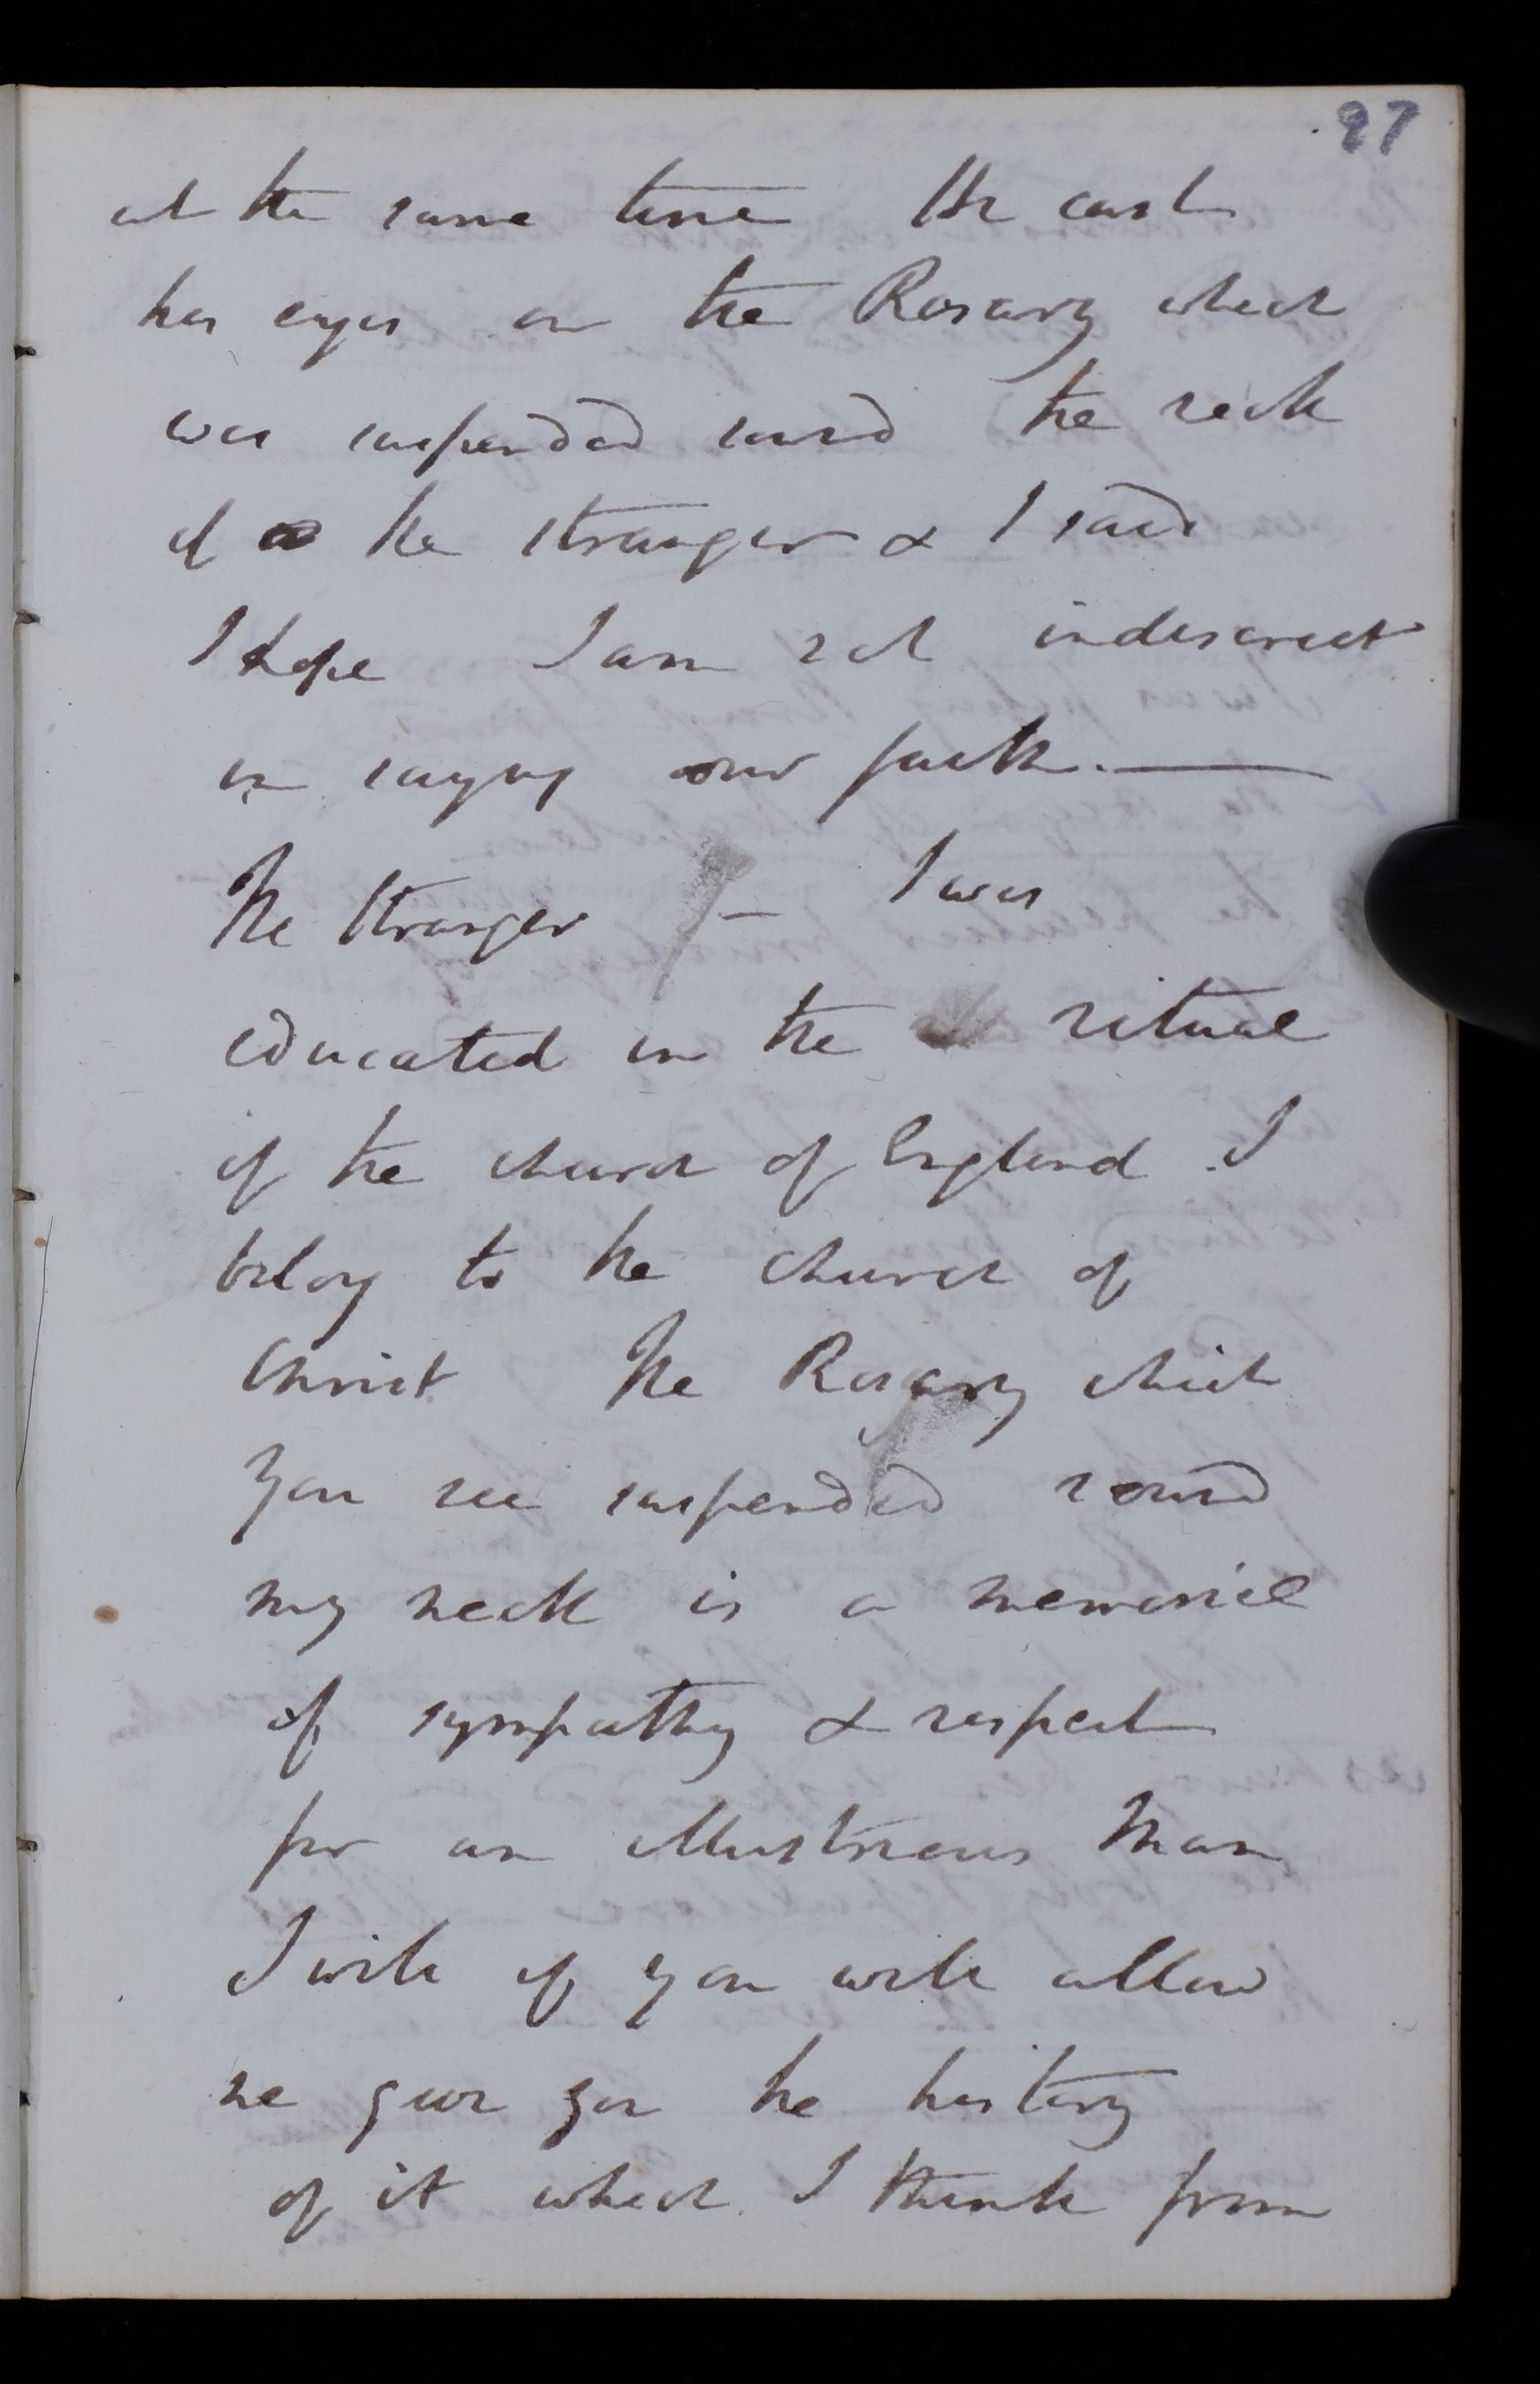 97
at the same time He cast
his eyes on the Rosary which
was suspended round the neck
of the stranger & I said
I hope I am not indiscreet
in saying our faith. —
The Stranger — I was
educated in the ritual
of the church of England . I
belong to the church of
Christ The Rosary which
you see suspended round
my neck is a memorial
of sympathy & respect
for an illustrious Man
I will if you will allow
me give you the history
of it which I think from